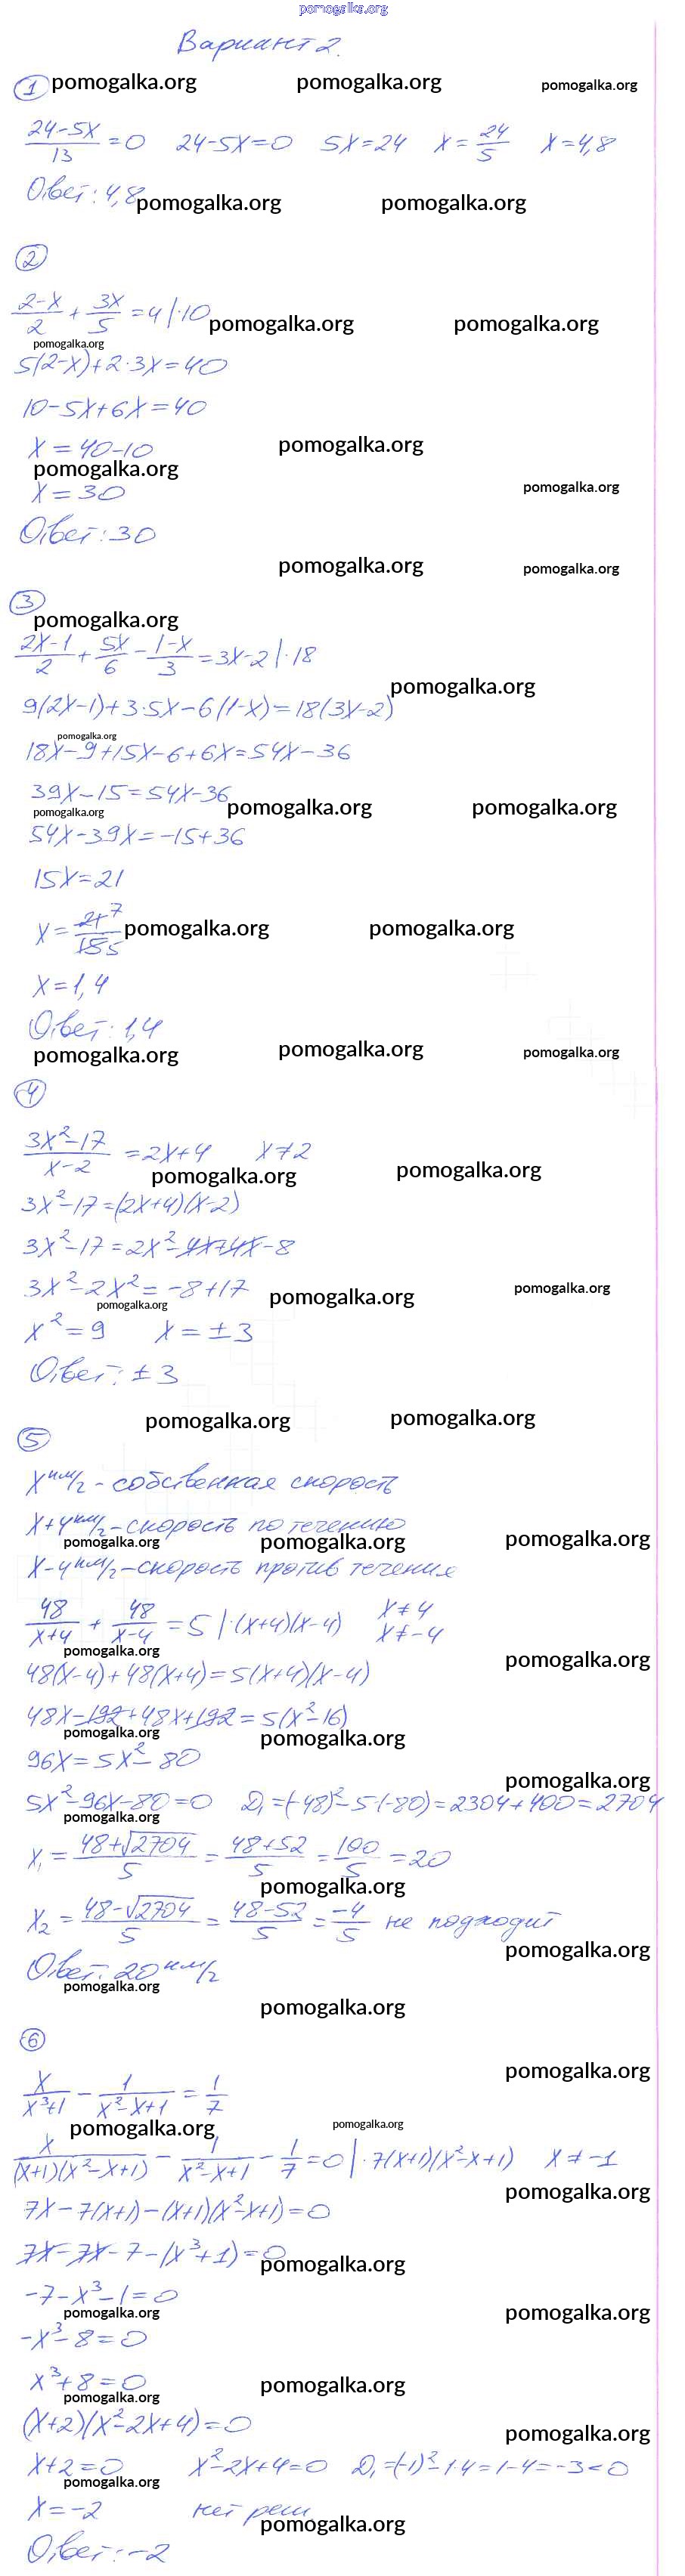 pomogalka.org
Вариант 2.
1 pomogalka.org pomogalka.org pomogalka.org
(24-5x)/13 = 0 24-5x=0 5x=24 x=24/5 x=4,8
Ответ: 4,8 pomogalka.org pomogalka.org
2
(2-x)/2 + 3x/5 = 4 |·10 pomogalka.org pomogalka.org
pomogalka.org
5(2-x)+2·3x=40
10-5x+6x=40
x=40-10 pomogalka.org
pomogalka.org
x=30 pomogalka.org
Ответ: 30
pomogalka.org pomogalka.org
3
pomogalka.org
(2x-1)/2 + 5x/6 - (1-x)/3 = 3x-2 |·18
pomogalka.org
9(2x-1)+3·5x-6(1-x)=18(3x-2)
pomogalka.org
18x-9+15x-6+6x=54x-36
39x-15=54x-36
pomogalka.org pomogalka.org pomogalka.org
54x-39x=-15+36
15x=21
x=21 7/15 5 pomogalka.org pomogalka.org
x=1,4
Ответ: 1,4
pomogalka.org pomogalka.org pomogalka.org
4
(3x²-17)/(x-2) = 2x+4 x≠2
pomogalka.org pomogalka.org
3x²-17=(2x+4)(x-2)
3x²-17=2x²-4x+4x-8
3x²-2x²=-8+17 pomogalka.org
pomogalka.org pomogalka.org
x²=9 x=±3
Ответ: ±3
pomogalka.org pomogalka.org
5
x км/ч - собственная скорость
x+4 км/ч - скорость по течению
pomogalka.org pomogalka.org pomogalka.org
x-4 км/ч - скорость против течения
48/(x+4) + 48/(x-4) = 5 |·(x+4)(x-4) x≠4 x≠-4
pomogalka.org pomogalka.org
48(x-4)+48(x+4)=5(x+4)(x-4)
48x-192+48x+192=5(x²-16)
pomogalka.org pomogalka.org
96x=5x²-80
pomogalka.org
5x²-96x-80=0 D₁=(-48)²-5·(-80)=2304+400=2704
pomogalka.org
x₁=(48+√2704)/5=(48+52)/5=100/5=20
pomogalka.org
x₂=(48-√2704)/5=(48-52)/5=-4/5 не подходит
pomogalka.org
Ответ: 20 км/ч
pomogalka.org
pomogalka.org
6
pomogalka.org
x/(x³+1) - 1/(x²-x+1) = 1/7
pomogalka.org pomogalka.org
x/((x+1)(x²-x+1)) - 1/(x²-x+1) - 1/7 = 0 |·7(x+1)(x²-x+1) x≠-1
pomogalka.org
7x-7(x+1)-(x+1)(x²-x+1)=0
7x-7x-7-(x³+1)=0
pomogalka.org
-7-x³-1=0
pomogalka.org pomogalka.org
-x³-8=0
x³+8=0 pomogalka.org
pomogalka.org
(x+2)(x²-2x+4)=0
pomogalka.org
x+2=0 x²-2x+4=0 D₁=(-1)²-1·4=1-4=-3<0
pomogalka.org
x=-2 нет реш.
pomogalka.org
Ответ: -2